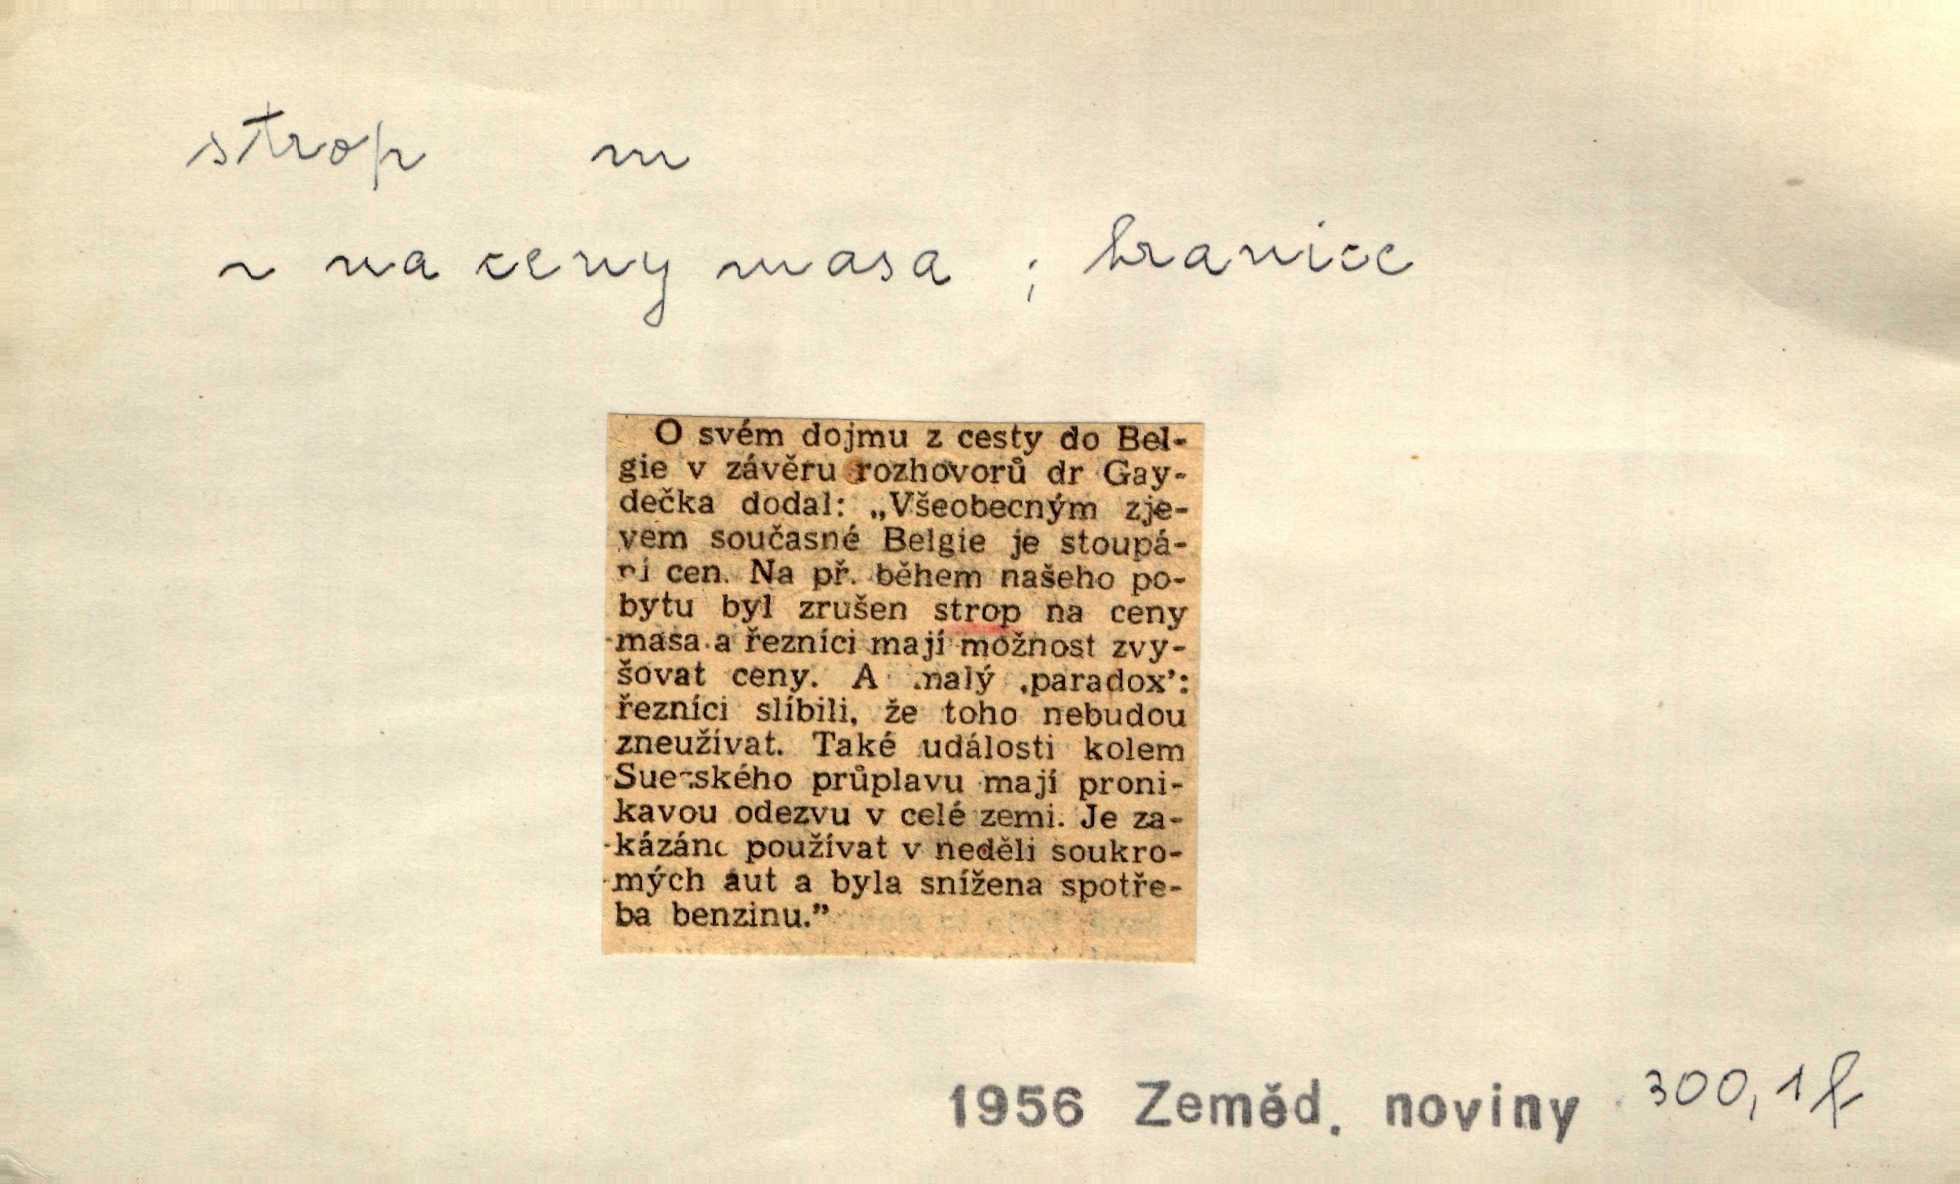 strop m
~ na ceny masa ; hranice
O svém dojmu z cesty do Bel-
gie v závěru rozhovorů dr Gay-
dečka dodal: „Všeobecným zje-
vem současné Belgie je stoupá-
ní cen. Na př. během našeho po-
bytu byl zrušen strop na ceny
masa a řezníci mají možnost zvy-
šovat ceny. A malý ‚paradox’:
řezníci slíbili, že toho nebudou
zneužívat. Také události kolem
Suezského průplavu mají proni-
kavou odezvu v celé zemi. Je za-
kázáno používat v neděli soukro-
mých aut a byla snížena spotře-
ba benzinu.”
1956 Zeměd. noviny 300,1